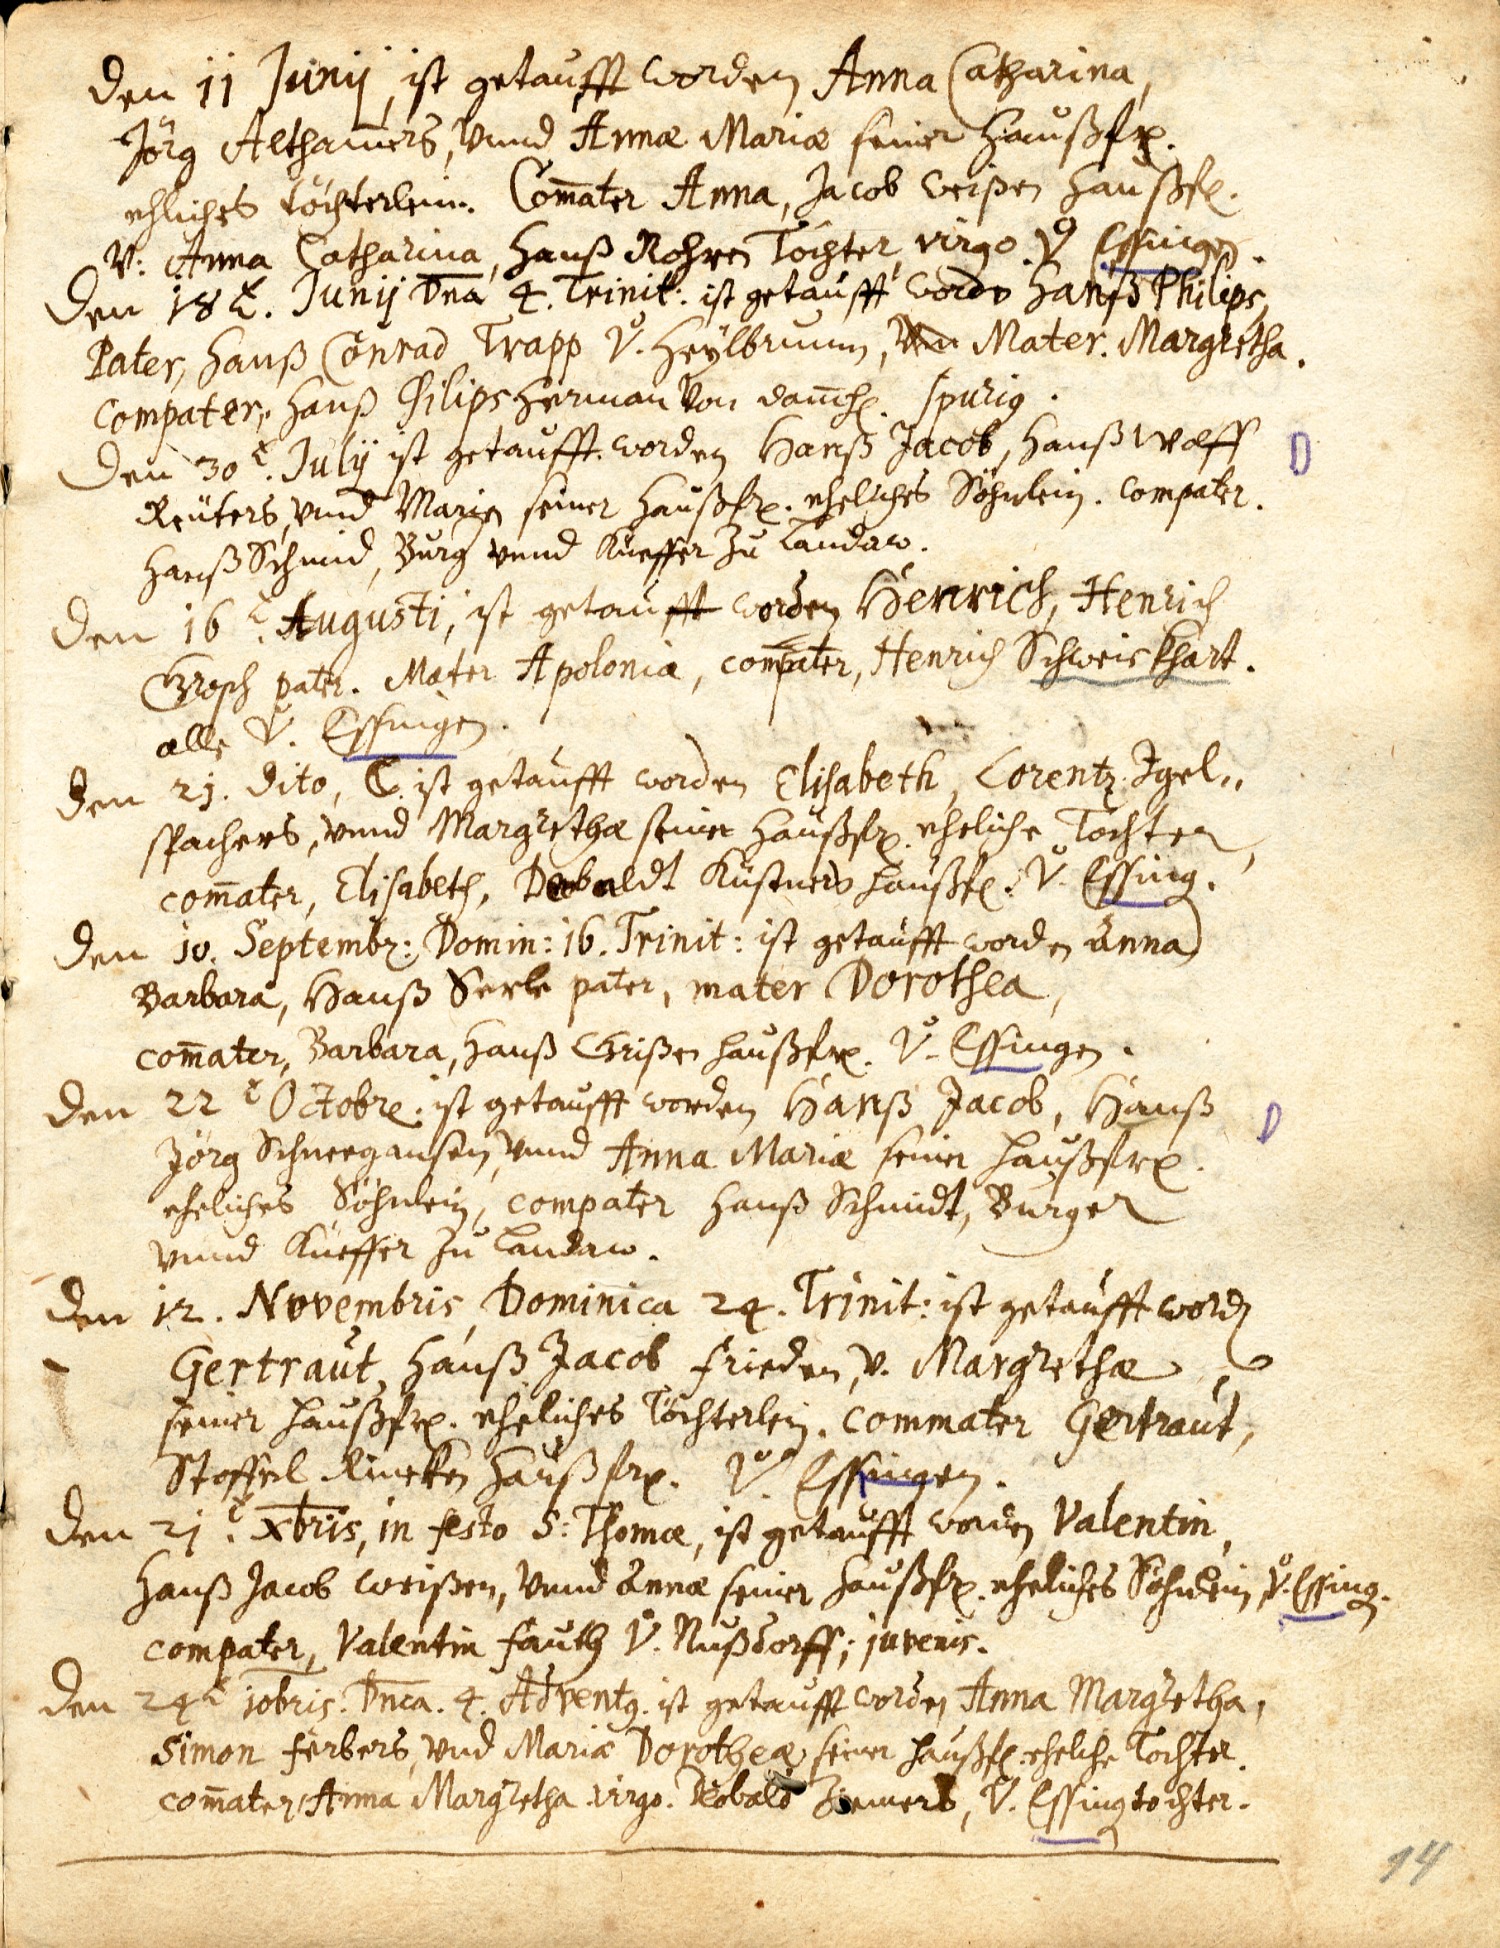 Den 11 Junij, ist getaufft worden Anna Catharina,
Jörg Althamers, vnnd Annæ Mariæ seiner Haußfr.
ehliches töchterlein. Com̄ater Anna, Jacob Weißen haußfr.
V: Anna Catharina, Hanß Rohren Tochter, virgo. V. Essingen.
Den 18t. Junij Dn̄a 4. Trinit: ist getaufft worde Hanß Philips,
Pater, Hanß Conrad Trapp V. Heylbrunn, Mater. Margretha.
Compater, Hanß Philips Herman von spurig.
Den 30t. Julij ist getaufft worden Hanß Jacob, Hanß Wolff
Reüters, vnnd Marien seiner Haußfr. eheliches Söhnlein. Compater.
Hanß Schmid, Burg vnnd Küeffer zu Landaw.
Den 16t. Augusti, ist getaufft worden Henrich, Henrich
Grosch pater. Mater Apolonia, compater, Henrich Schweickhart.
alle V. Essingen.
Den 21. dito, ist getaufft worden Elisabeth, Lorentz Igel„
spachers, vnnd Margrethæ seiner Haußfr. eheliche Tochter,
com̄ater, Elisabeth, Debaldt Küstners haußfr. V. Essing.
Den 10. Septembr: Domin: 16. Trinit: ist getaufft worden Anna
Barbara, Hanß Serle pater, mater Dorothea,
com̄ater, Barbara, Hanß Grißen haußfr. V. Essingen.
Den 22t Octobr. ist getaufft worden Hanß Jacob, Hanß
Jörg Schneegansen, vnnd Anna Mariæ seiner haußfr.
eheliches Söhnlein, compater Hanß Schmidt, Burger
vnnd Küeffer zu Landaw.
Den 12. Novembris, Dominica 24. Trinit: ist getaufft worden
Gertraut, Hanß Jacob Frieden, v. Margrethæ
seiner haußfr. eheliches Töchterlein. Commater Gertraut,
Stoffel Rincken Haußfr. V. Essingen.
Den 21t. Xbris, in festo S: Thomæ, ist getaufft worden Valentin,
Hanß Jacob Weißen, vnnd Annæ seiner haußfr. eheliches Söhnlein, V. Essing.
compater, Valentin Fauth V. Nußdorff; juvenis.
Den 24t 10bris. Dn̄ca. 4. Advent9. ist getaufft worden Anna Margretha,
Simon Ferbers, vnd Mariæ Dorotheæ seiner haußfr. ehelche Tochter.
com̄ater, Anna Margretha virgo. Deobald V. Essing tochter.
14